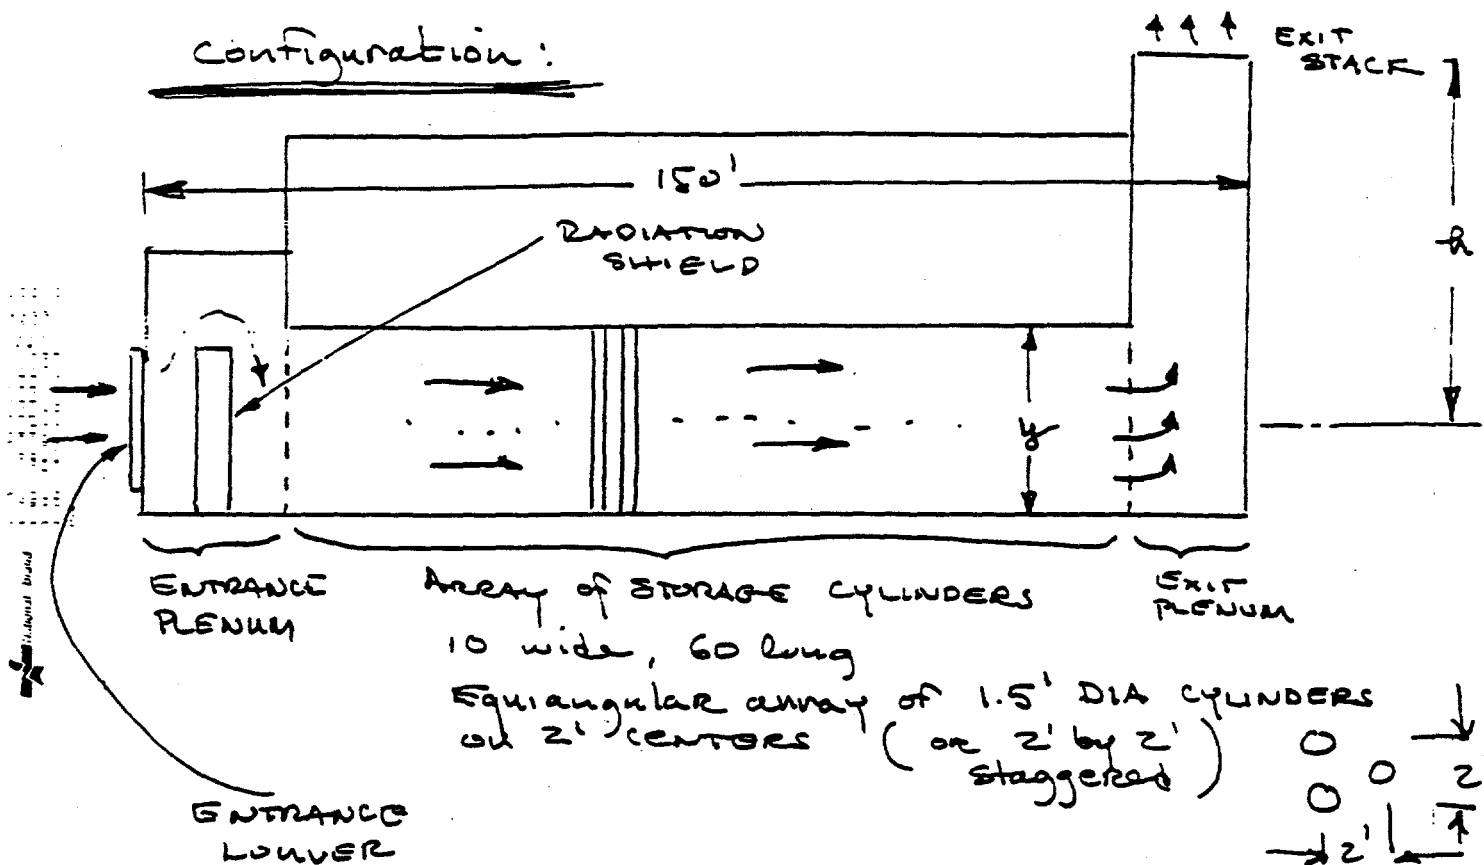 Configuration:
EXIT
STACK
150'
RADIATION
SHIELD
h
y
ENTRANCE
PLENUM
ARRAY of STORAGE CYLINDERS
10 wide, 60 long
Equiangular array of 1.5' DIA CYLINDERS
on 2' CENTERS (or 2' by 2'
staggered)
EXIT
PLENUM
2
2'
ENTRANCE
LOUVER